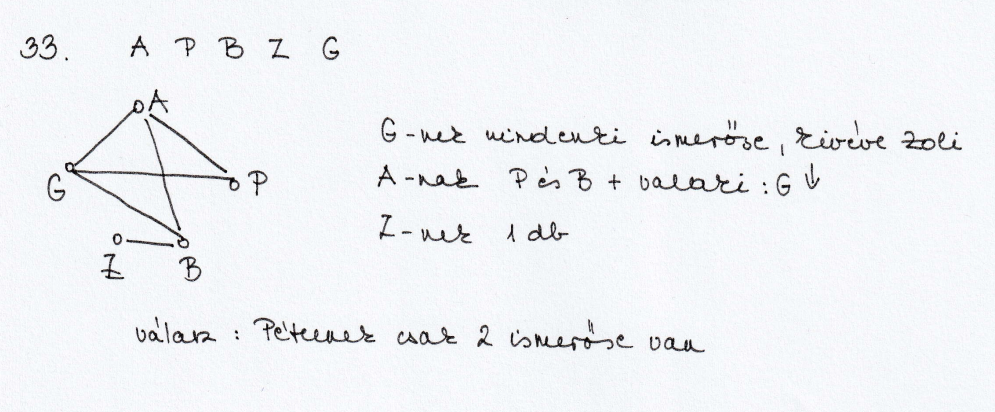 33. A P B Z G
A
G
P
Z
B
G-nek mindenki ismerőse, kivéve Zoli
A-nak P és B + valaki : G ↓
Z-nek 1 db
válasz : Péternek csak 2 ismerőse van